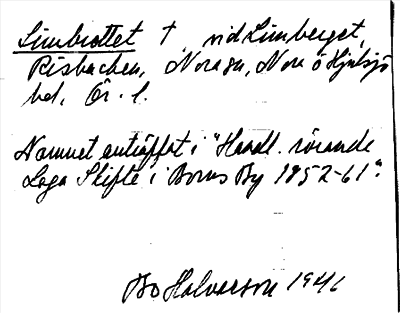 Limbrottet † vid Limberget,
Risbacken, Norasn, Nora o Hjulsjö
bd. Ör. l.
Namnet anträffat i "Handl. rörande
Laga Skifte i Borns By 1852-61".
Bo Halvarson 1946